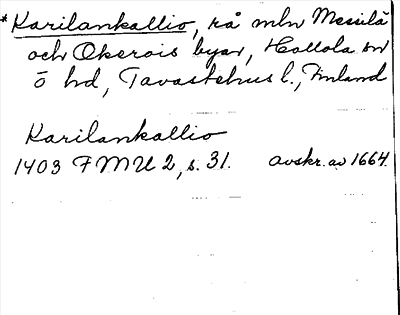 *Karilankallio, rå mln Messilä
och Okerois byar, Hollola sn
ö hd, Tavastehus l., Finland
Karilankallio
1403 FMU 2, s. 31. avskr. av 1664.